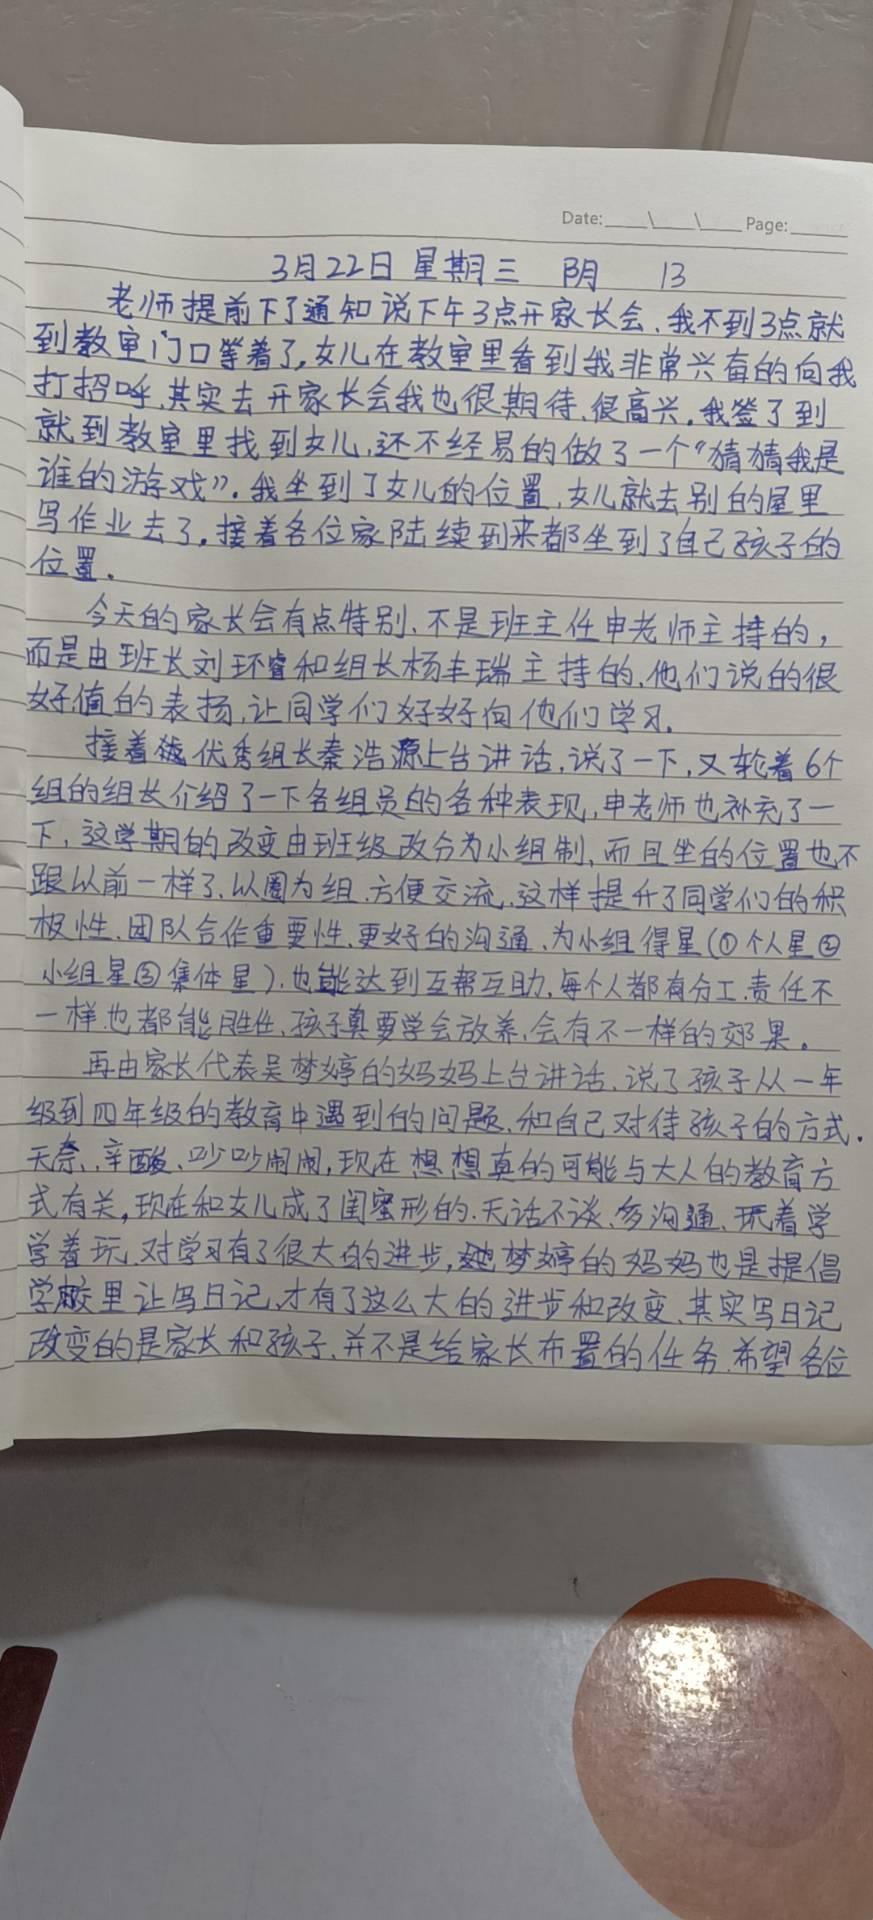 Date:____\____\____ Page:______
3月22日 星期三 阴 13
老师提前下了通知说下午3点开家长会、我不到3点就
到教室门口等着了,女儿在教室里看到我非常兴奋的向我
打招呼、其实去开家长会我也很期待、很高兴。我签了到
就到教室里找到女儿,还不经易的做了一个“猜猜我是
谁的游戏”。我坐到了女儿的位置,女儿就去别的屋里
写作业去了。接着各位家陆续到来都坐到了自己孩子的
位置。
今天的家长会有点特别、不是班主任申老师主持的,
而是由班长刘环睿和组长杨丰瑞主持的、他们说的很
好值的表扬,让同学们好好向他们学习。
接着优秀组长秦浩源上台讲话,说了一下,又轮着6个
组的组长介绍了一下各组员的各种表现,申老师也补充了一
下,这学期的改变由班级改分为小组制、而且坐的位置也不
跟以前一样了、以圈为组、方便交流、这样提升了同学们的积
极性、团队合作重要性、更好的沟通、为小组得星(①个人星②
小组星③集体星)、也能达到互帮互助、每个人都有分工、责任不
一样也都能胜任、孩子真要学会放养、会有不一样的效果。
再由家长代表吴梦婷的妈妈上台讲话、说了孩子从一年
级到四年级的教育中遇到的问题、和自己对待孩子的方式。
无奈、辛酸、吵吵闹闹,现在想想真的可能与大人的教育方
式有关,现在和女儿成了闺蜜形的、无话不谈、多沟通、玩着学
学着玩、对学习有了很大的进步,她梦婷的妈妈也是提倡
学校里让写日记、才有了这么大的进步和改变、其实写日记
改变的是家长和孩子、并不是给家长布置的任务、希望各位